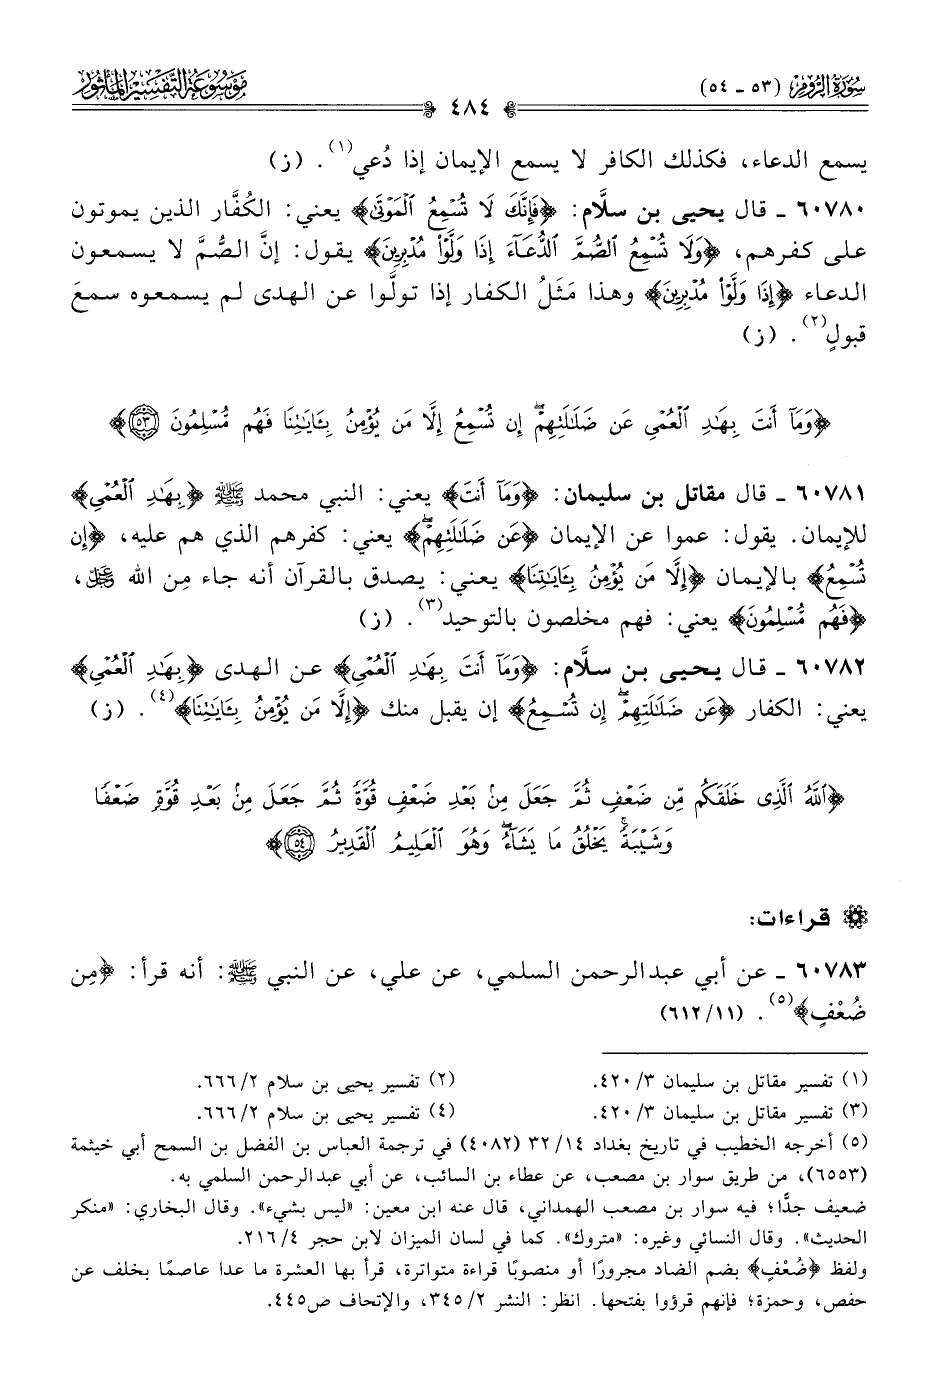 سورة الروم (٥٣ - ٥٤)
٤٨٤
موسوعة التفسير المأثور
يسمع الدعاء، فكذلك الكافر لا يسمع الإيمان إذا دُعي(١). (ز)
٦٠٧٨٠ - قال يحيى بن سلَّام: ﴿فَإِنَّكَ لَا تُسْمِعُ الْمَوْتَى﴾ يعني: الكُفَّار الذين يموتون
على كفرهم، ﴿وَلَا تُسْمِعُ الصُّمَّ الدُّعَاءَ إِذَا وَلَّوْا مُدْبِرِينَ﴾ يقول: إنَّ الصُّمَّ لا يسمعون
الدعاء ﴿إِذَا وَلَّوْا مُدْبِرِينَ﴾ وهذا مَثَلُ الكفار إذا تولَّوا عن الهدى لم يسمعوه سمعَ
قبولٍ(٢). (ز)
﴿وَمَا أَنتَ بِهَادِ الْعُمْيِ عَن ضَلَالَتِهِمْ ۖ إِن تُسْمِعُ إِلَّا مَن يُؤْمِنُ بِآيَاتِنَا فَهُم مُّسْلِمُونَ ٥٣﴾
٦٠٧٨١ - قال مقاتل بن سليمان: ﴿وَمَا أَنتَ﴾ يعني: النبي محمد ﷺ ﴿بِهَادِ الْعُمْيِ﴾
للإيمان. يقول: عموا عن الإيمان ﴿عَن ضَلَالَتِهِمْ ۖ﴾ يعني: كفرهم الذي هم عليه، ﴿إِن
تُسْمِعُ﴾ بالإيمان ﴿إِلَّا مَن يُؤْمِنُ بِآيَاتِنَا﴾ يعني: يصدق بالقرآن أنه جاء مِن الله ﷿،
﴿فَهُم مُّسْلِمُونَ﴾ يعني: فهم مخلصون بالتوحيد(٣). (ز)
٦٠٧٨٢ - قال يحيى بن سلَّام: ﴿وَمَا أَنتَ بِهَادِ الْعُمْيِ﴾ عن الهدى ﴿بِهَادِ الْعُمْيِ﴾
يعني: الكفار ﴿عَن ضَلَالَتِهِمْ ۖ إِن تُسْمِعُ﴾ إن يقبل منك ﴿إِلَّا مَن يُؤْمِنُ بِآيَاتِنَا﴾(٤). (ز)
﴿اللَّهُ الَّذِي خَلَقَكُم مِّن ضَعْفٍ ثُمَّ جَعَلَ مِنْ بَعْدِ ضَعْفٍ قُوَّةً ثُمَّ جَعَلَ مِنْ بَعْدِ قُوَّةٍ ضَعْفًا
وَشَيْبَةً ۚ يَخْلُقُ مَا يَشَاءُ ۖ وَهُوَ الْعَلِيمُ الْقَدِيرُ ٥٤﴾
قراءات:
٦٠٧٨٣ - عن أبي عبدالرحمن السلمي، عن علي، عن النبي ﷺ: أنه قرأ: ﴿مِن
ضُعْفٍ﴾(٥). (٦١٢/١١)
(١) تفسير مقاتل بن سليمان ٣/ ٤٢٠. (٢) تفسير يحيى بن سلام ٢/ ٦٦٦.
(٣) تفسير مقاتل بن سليمان ٣/ ٤٢٠. (٤) تفسير يحيى بن سلام ٢/ ٦٦٦.
(٥) أخرجه الخطيب في تاريخ بغداد ١٤/ ٣٢ (٤٠٨٢) في ترجمة العباس بن الفضل بن السمح أبي خيثمة
(٦٥٥٣)، من طريق سوار بن مصعب، عن عطاء بن السائب، عن أبي عبدالرحمن السلمي به.
ضعيف جدًّا؛ فيه سوار بن مصعب الهمداني، قال عنه ابن معين: «ليس بشيء». وقال البخاري: «منكر
الحديث». وقال النسائي وغيره: «متروك». كما في لسان الميزان لابن حجر ٤/ ٢١٦.
ولفظ ﴿ضُعْفٍ﴾ بضم الضاد مجرورًا أو منصوبًا قراءة متواترة، قرأ بها العشرة ما عدا عاصمًا بخلف عن
حفص، وحمزة؛ فإنهم قرؤوا بفتحها. انظر: النشر ٢/ ٣٤٥، والإتحاف ص٤٤٥.